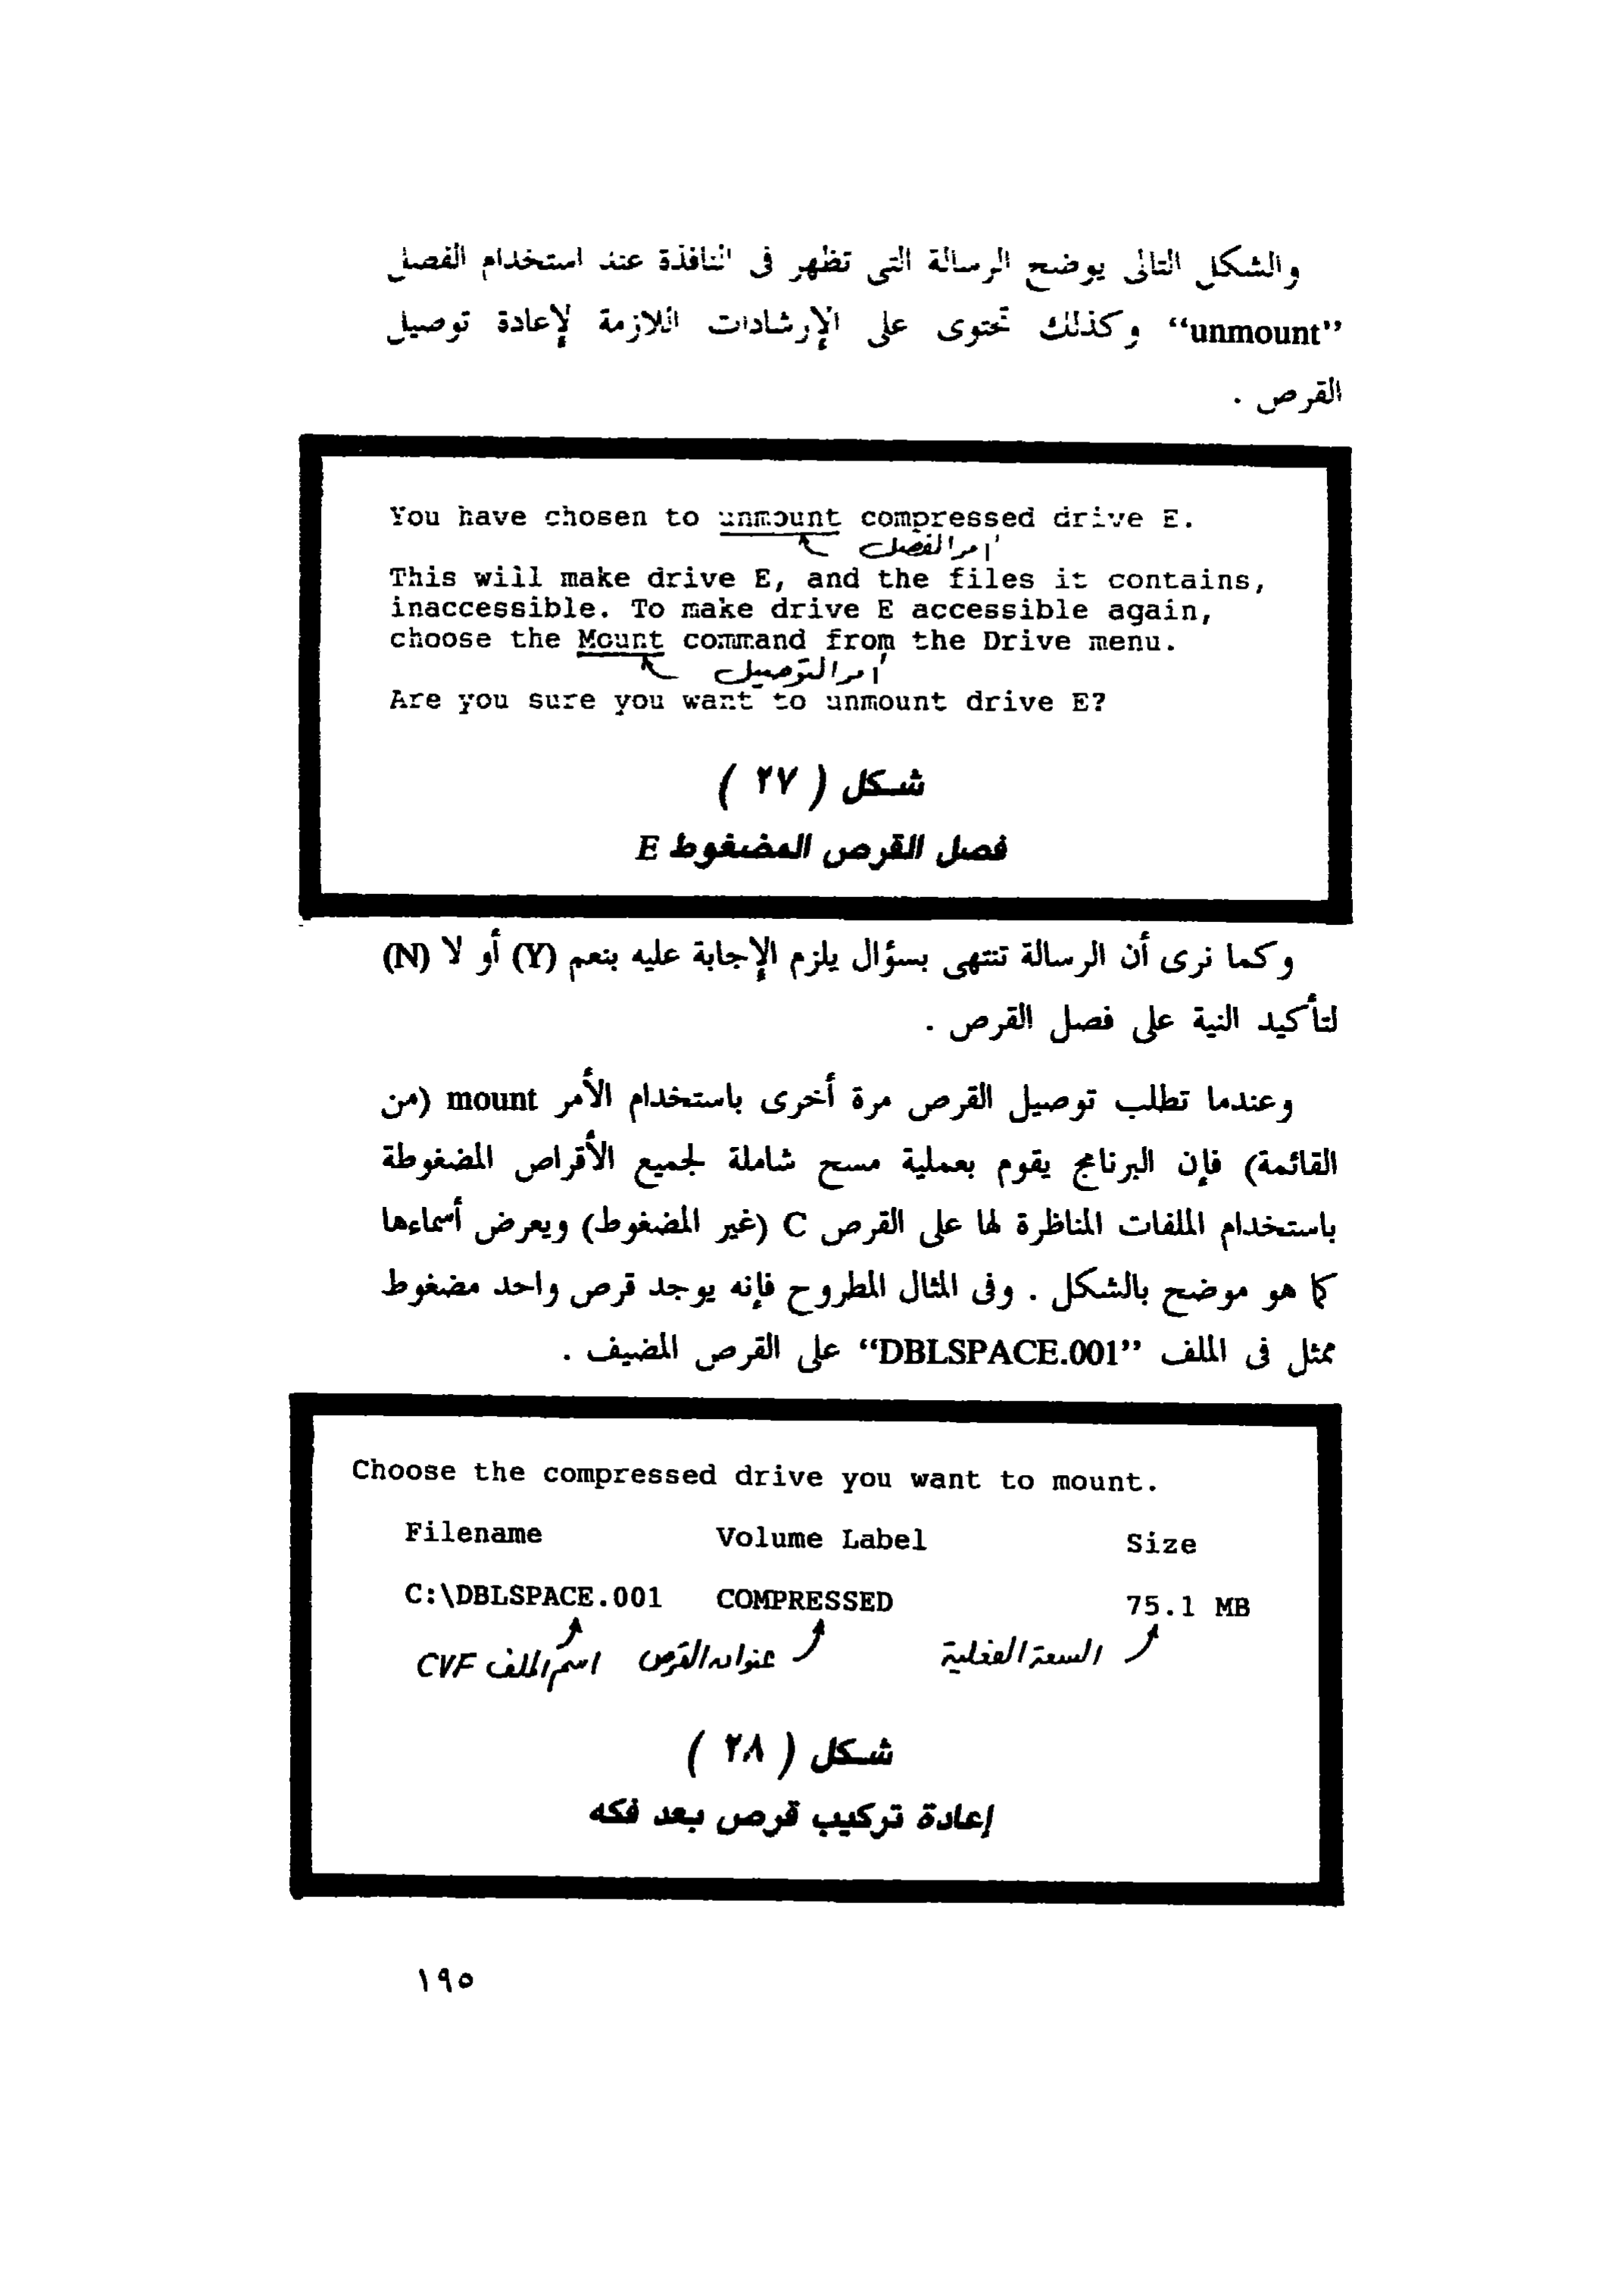 والشكل التالى يوضح الرسالة التى تظهر فى النافذة عند استخدام الفصل
“unmount” وكذلك تحتوى على الإرشادات اللازمة لإعادة توصيل
القرص .
You have chosen to unmount compressed drive E.
أمر الفصل
This will make drive E, and the files it contains,
inaccessible. To make drive E accessible again,
choose the Mount command from the Drive menu.
أمر التوصيل
Are you sure you want to unmount drive E?
شكل ( ٢٧ )
فصل القرص المضغوط E
وكما نرى أن الرسالة تنتهى بسؤال يلزم الإجابة عليه بنعم (Y) أو لا (N)
لتأكيد النية على فصل القرص .
وعندما تطلب توصيل القرص مرة أخرى باستخدام الأمر mount (من
القائمة) فإن البرنامج يقوم بعملية مسح شاملة لجميع الأقراص المضغوطة
باستخدام الملفات المناظرة لها على القرص C (غير المضغوط) ويعرض أسماءها
كما هو موضح بالشكل . وفى المثال المطروح فإنه يوجد قرص واحد مضغوط
ممثل فى الملف “DBLSPACE.001” على القرص المضيف .
Choose the compressed drive you want to mount.
Filename Volume Label Size
C:\DBLSPACE.001 COMPRESSED 75.1 MB
اسم الملف CVF عنوان القرص السعة الفعلية
شكل ( ٢٨ )
إعادة تركيب قرص بعد فكه
١٩٥